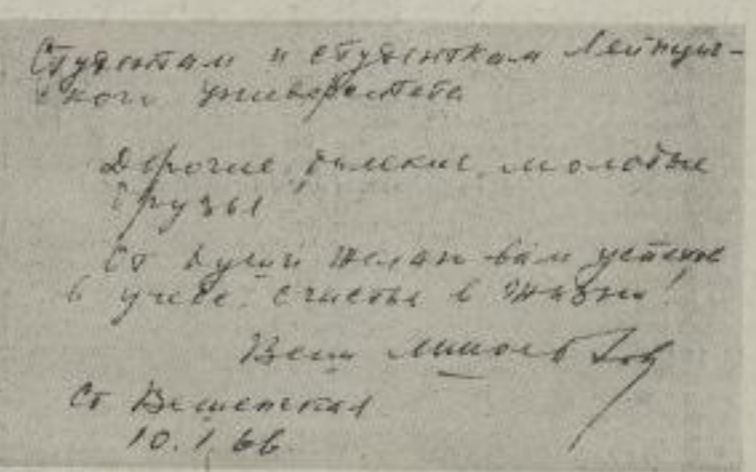 Студентам и студенткам Лейпциг-
ского университета
Дорогие, далекие, молодые
друзья!
От души желаю вам успехов
в учебе, счастья в жизни!
Ваш М. Шолохов
Ст. Вешенская
10.1.66.